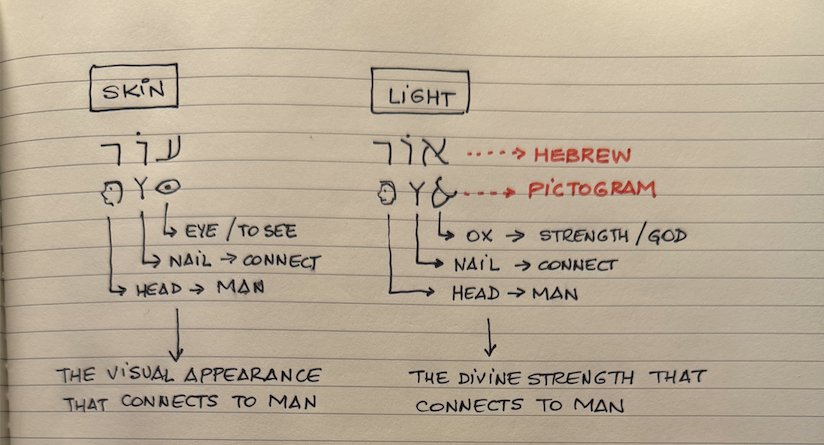 SKIN
עוֹר
EYE / TO SEE
NAIL → CONNECT
HEAD → MAN
THE VISUAL APPEARANCE
THAT CONNECTS TO MAN
LIGHT
אוֹר → HEBREW
→ PICTOGRAM
OX → STRENGTH / GOD
NAIL → CONNECT
HEAD → MAN
THE DIVINE STRENGTH THAT
CONNECTS TO MAN